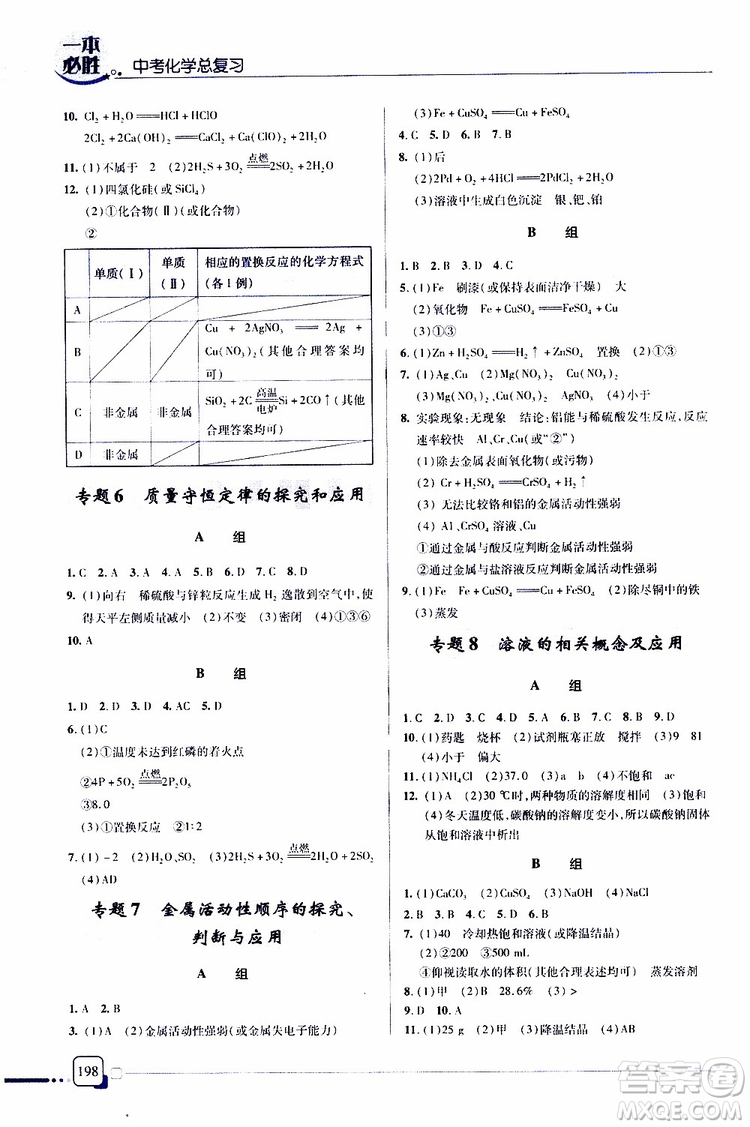 一本
必胜
中考化学总复习
10. Cl₂+H₂O══HCl+HClO
2Cl₂+2Ca(OH)₂══CaCl₂+Ca(ClO)₂+2H₂O
11. (1)不属于 2 (2)2H₂S+3O₂ 点燃══2SO₂+2H₂O
12. (1)四氯化硅(或SiCl₄)
(2)①化合物(Ⅱ)(或化合物)
②
单质(Ⅰ) 单质(Ⅱ) 相应的置换反应的化学方程式(各1例)
A
B Cu + 2AgNO₃══2Ag +
Cu(NO₃)₂(其他合理答案均
可)
C 非金属 非金属 SiO₂+2C 高温/电炉══Si+2CO↑(其他
合理答案均可)
D 非金属
专题6 质量守恒定律的探究和应用
A 组
1. C 2. A 3. A 4. B 5. C 6. D 7. D 8. C
9. (1)向右 稀硫酸与锌粒反应生成H₂逸散到空气中,使
得天平左侧质量减小 (2)不变 (3)密闭 (4)①③⑥
10. A
B 组
1. D 2. D 3. D 4. AC 5. D
6. (1)C
(2)①温度未达到红磷的着火点
②4P+5O₂ 点燃══2P₂O₅
③8.0
(3)①置换反应 ②1∶2
7. (1)-2 (2)H₂O、SO₂ (3)2H₂S+3O₂ 点燃══2SO₂+2H₂O
(4)AD
专题7 金属活动性顺序的探究、
判断与应用
A 组
1. A 2. B
3. (1)AD (2)金属活动性强弱(或金属失电子能力)
(3)Fe+CuSO₄══Cu+FeSO₄
4. C 5. D 6. B 7. B
8. (1)后
(2)2Pd+O₂+4HCl══2PdCl₂+2H₂O
(3)溶液中生成白色沉淀 银、钯、铂
B 组
1. B 2. D 3. D 4. C
5. (1)Fe 刷漆(或保持表面洁净干燥) 大
(2)氧化物 Fe+CuSO₄══FeSO₄+Cu
(3)①③
6. (1)Zn+H₂SO₄══H₂↑+ZnSO₄ 置换 (2)①③
7. (1)Ag、Cu (2)Mg(NO₃)₂、Cu(NO₃)₂
(3)Mg(NO₃)₂、Cu(NO₃)₂ (4)小于
8. 实验现象:无现象 结论:铝能与稀硫酸发生反应,反应
速率较快 Al、Cr、Cu(或“②”)
(1)除去金属表面氧化物(或污物)
(2)Cr+H₂SO₄══CrSO₄+H₂↑
(3)无法比较铬和铝的金属活动性强弱
(4)Al、CrSO₄溶液、Cu
①通过金属与酸反应判断金属活动性强弱
②通过金属与盐溶液反应判断金属活动性强弱
9. (1)Fe+CuSO₄══FeSO₄+Cu (2)除尽铜中的铁
(3)蒸发
专题8 溶液的相关概念及应用
A 组
1. C 2. D 3. D 4. D 5. A 6. B 7. A 8. B 9. D
10. (1)药匙 烧杯 (2)试剂瓶塞正放 搅拌 (3)9 81
(4)小于 偏大
11. (1)NH₄Cl (2)37.0 (3)a b (4)不饱和 ac
12. (1)A (2)30 ℃时,两种物质的溶解度相同 (3)B
(4)冬天温度低,碳酸钠的溶解度变小,所以碳酸钠固体
从饱和溶液中析出
B 组
1. (1)CaCO₃ (2)CuSO₄ (3)NaOH (4)NaCl
2. B 3. D 4. C 5. C 6. B
7. (1)40 冷却热饱和溶液(或降温结晶)
(2)②200 ③500 mL
④仰视读取水的体积(其他合理答案均可) 蒸发溶剂
8. (1)甲 (2)28.6% (3)>
9. D 10. A
11. (1)25 g (2)甲 (3)降温结晶 (4)AB
198
答案圈
MXQE.COM